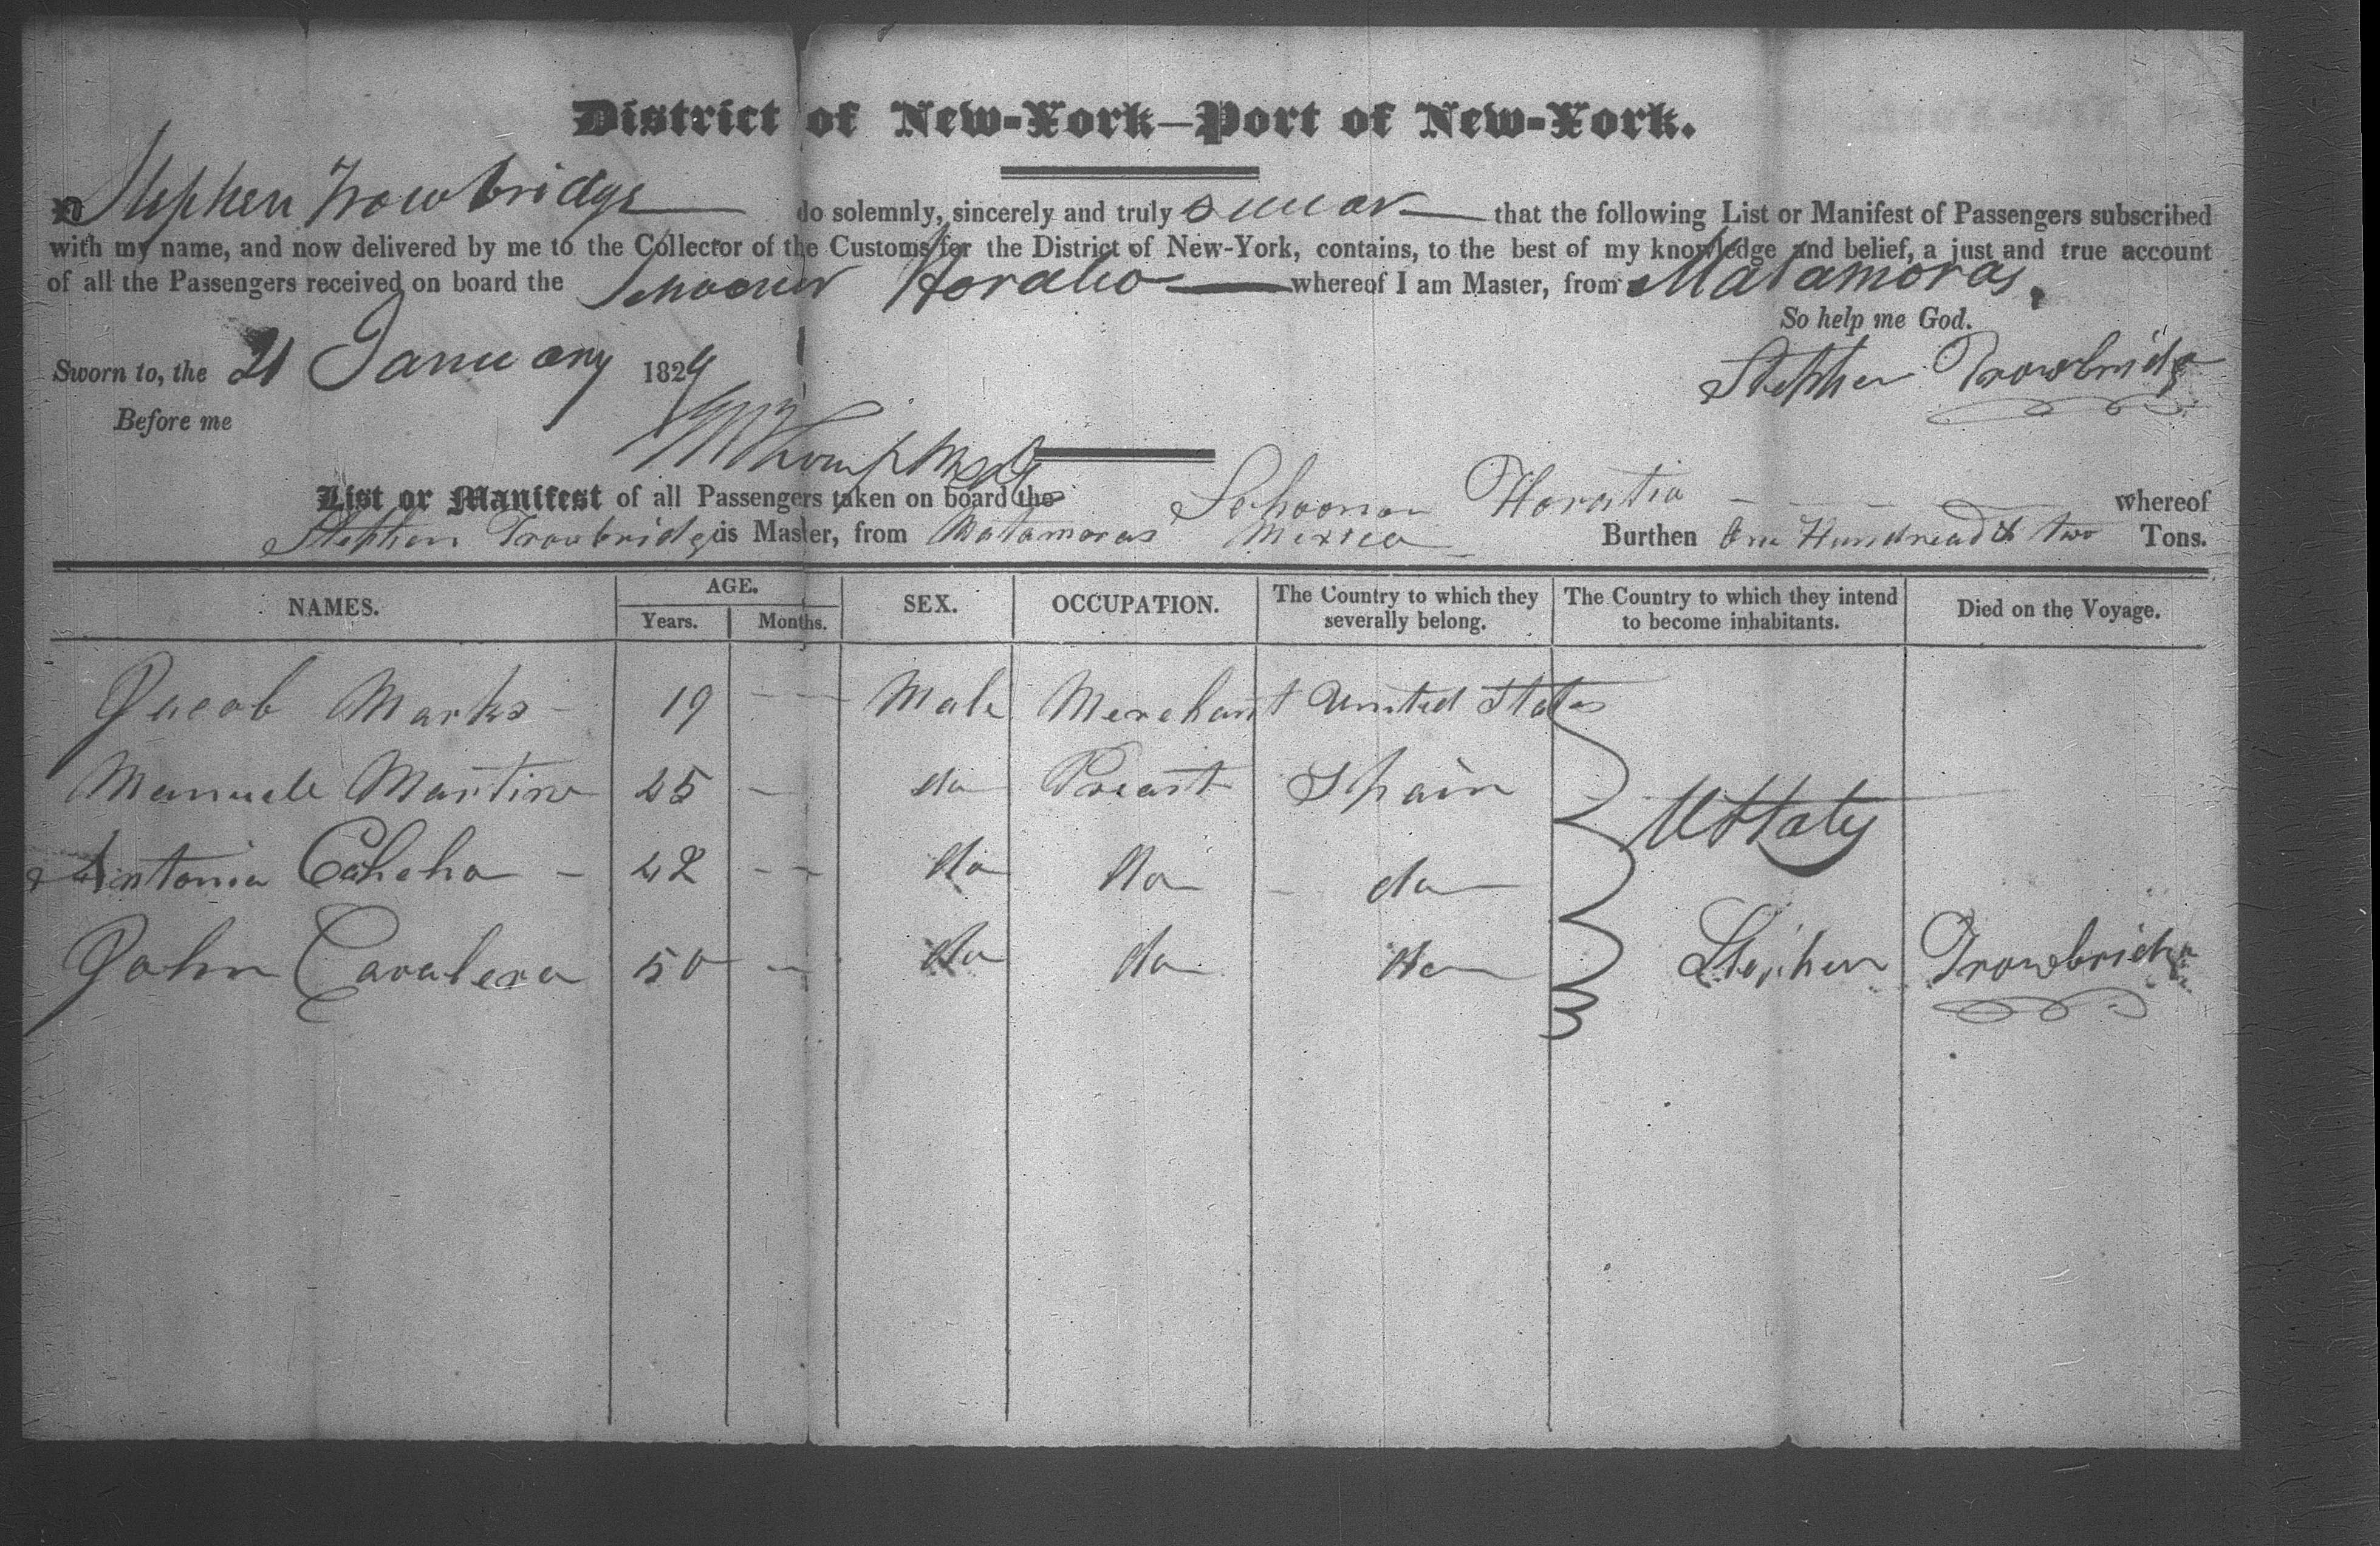 District of New-York—Port of New-York.
I Stephen Trowbridge do solemnly, sincerely and truly swear that the following List or Manifest of Passengers subscribed
with my name, and now delivered by me to the Collector of the Customs for the District of New-York, contains, to the best of my knowledge and belief, a just and true account
of all the Passengers received on board the Schooner Horatio whereof I am Master, from Matamoras.
So help me God.
Sworn to, the 21 January 1829
Stephen Trowbridge
Before me
List or Manifest of all Passengers taken on board the Schooner Horatio whereof
Stephen Trowbridge is Master, from Matamoras Mexico Burthen One Hundread & two Tons.
NAMES. AGE. Years. Months. SEX. OCCUPATION. The Country to which they severally belong. The Country to which they intend to become inhabitants. Died on the Voyage.
Jacob Marks 19 Male Merchant United States
Manuele Martine 25 do Preast Spain
U States
Antonia 42 do do do
John Cavalera 50 do do do
Stephen Trowbridge